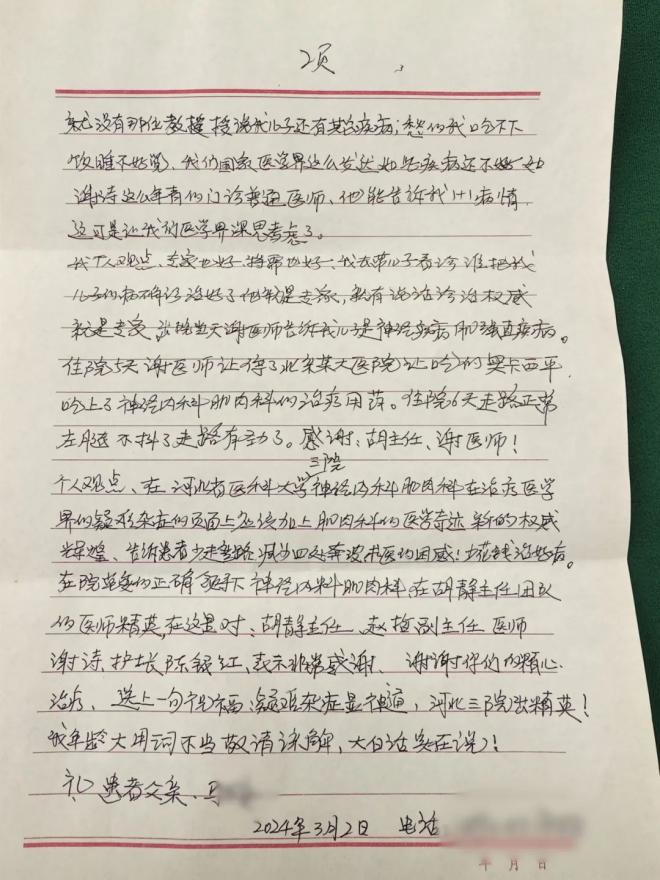 2页
就没有那位教授 授说我儿子还有其它疾病；愁的我吃不下
饭睡不好觉、我们国家医学界这么发达 如
谢诗这么年青的门诊普通医师、他能告诉我1+1病情
这可是让我的医学界深思考虑了。
我个人观点、专家也好、特需也好、我去带儿子看诊谁把我
儿子的病不确诊治好了他就是专家，就有说话诊治权威
就是专家，出院当天谢医师告诉我儿子是神经疾病肌强直疾病。
住院5天谢医师让停了北京某大医院让吃的奥卡西平
吃上了神经内科肌肉科的治疗用药。住院6天走路正常
左腿不抖了走路有劲了。感谢：胡主任、谢医师！
三院
个人观点、在河北省医科大学神经内科肌肉科在治疗医学
界的疑难杂症的页面上应该加上肌肉科的医学奇迹 新的权威
辉煌、告诉患者少走弯路 减少四处奔波求医的困惑！少花钱治好病。
在院党委的正确领导下神经内科肌肉科、在胡静主任团队
的医师精英，在这里对：胡静主任、赵哲副主任 医师
谢诗 护长陈绿红、表示非常感谢、谢谢你们的精心
治疗、送上一句祝福：疑难杂症显神通，河北三院出精英！
我年龄大用词不当敬请谅解，大白话实在说！
礼 患者父亲、
2024年3月2日 电话
年 月 日